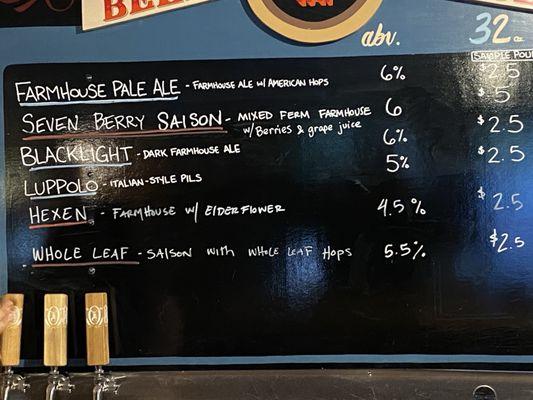 abv.
32 oz
SAMPLE POUR
FARMHOUSE PALE ALE - FARMHOUSE ALE W/ AMERICAN HOPS 6% $2.5
SEVEN BERRY SAISON - MIXED FERM FARMHOUSE 6 $5
w/ Berries & grape juice
BLACKLIGHT - DARK FARMHOUSE ALE 6% $2.5
LUPPOLO - ITALIAN-STYLE PILS 5% $2.5
HEXEN - FARMHOUSE W/ ELDERFLOWER 4.5% $2.5
WHOLE LEAF - SAISON WITH WHOLE LEAF HOPS 5.5% $2.5